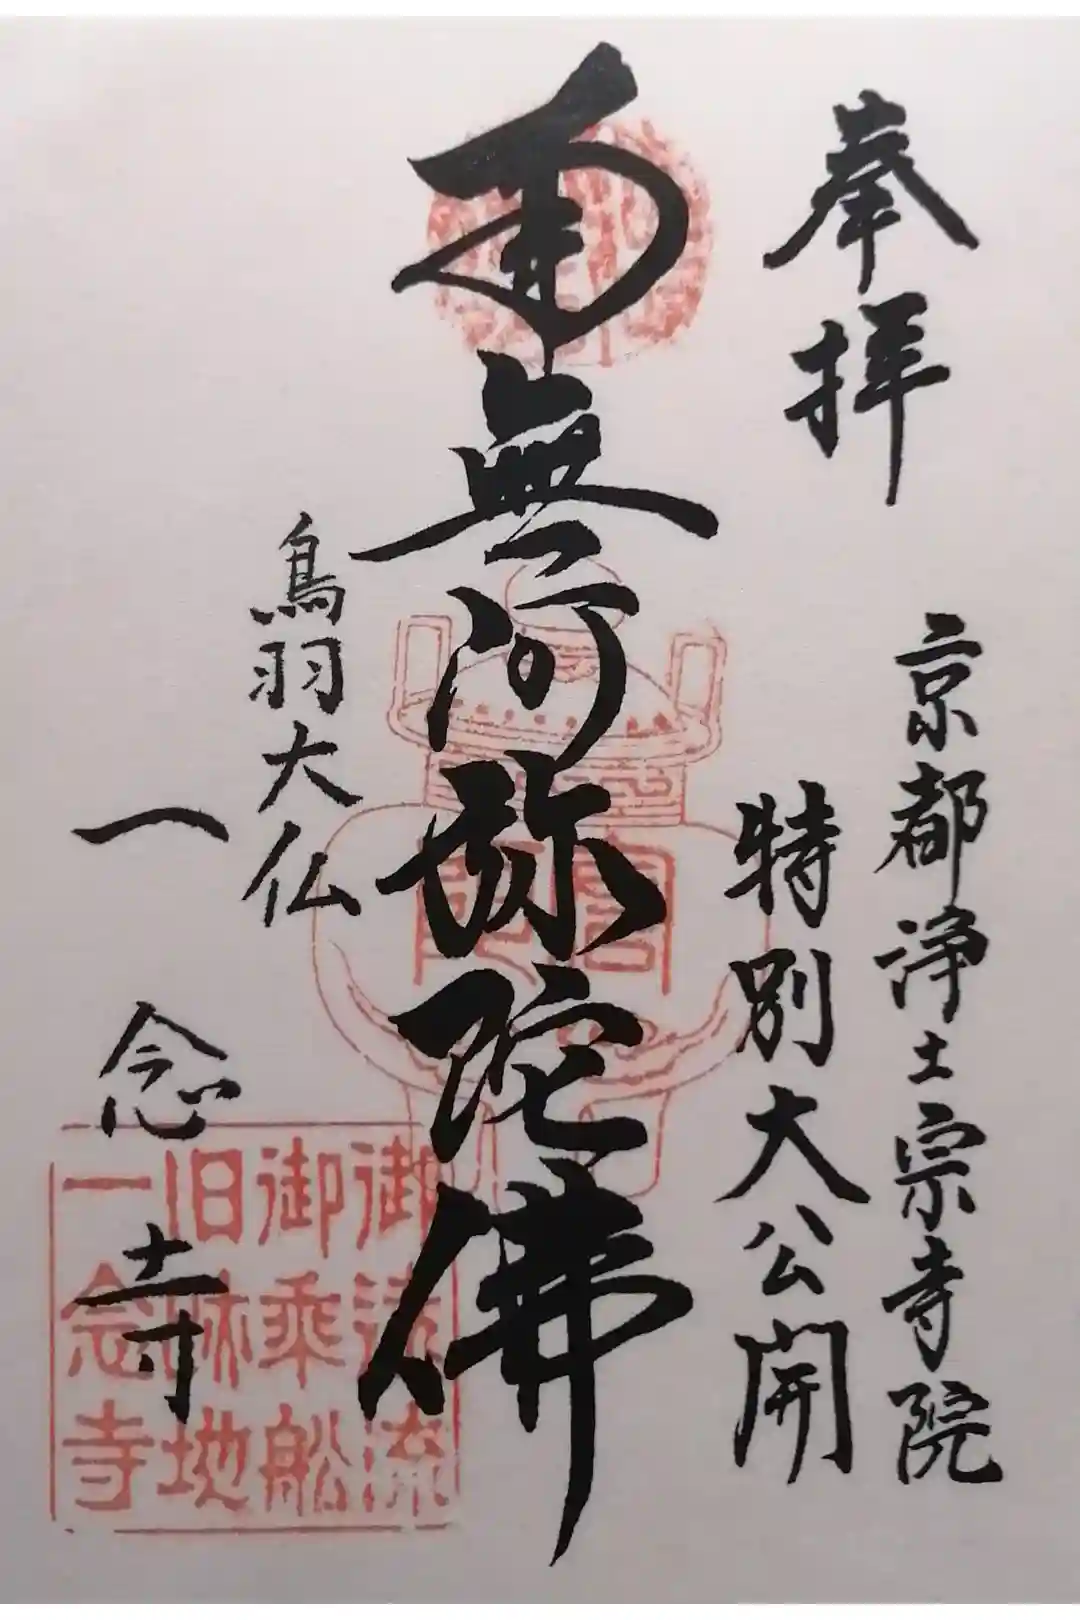 奉拝
京都浄土宗寺院
特別大公開
南無阿弥陀佛
鳥羽大仏
一念寺
御法流
御乗船
旧跡地
一念寺